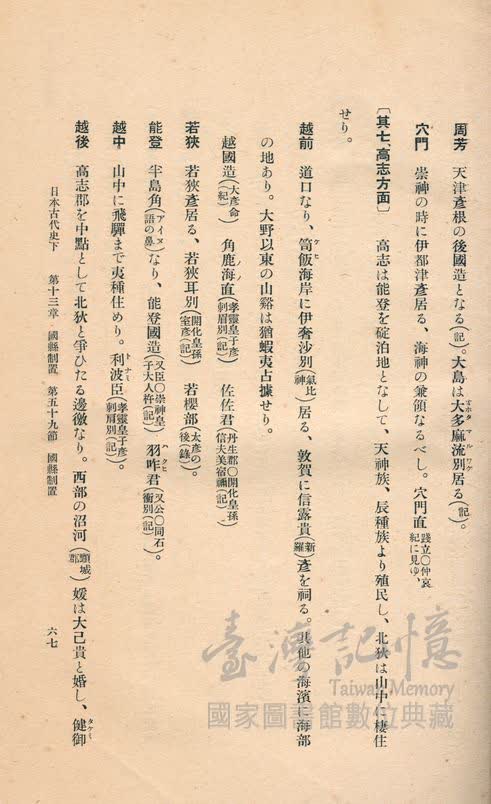 周芳　天津彥根の後國造となる(記)。大島は大多麻流別居る(記)。
穴門　崇神の時に伊都津彥居る、海神の兼領なるべし。穴門直(踐立〇仲哀紀に見ゆ、
〔其七、高志方面〕　高志は能登を碇泊地となして、天神族、辰種族より殖民し、北狄は山中に棲住
せり。
越前　道口なり、笥飯海岸に伊奢沙別(氣比神)居る、敦賀に信露貴(新羅)彥を祠る。其他の海濱に海部
の地あり。大野以東の山谿は猶蝦夷占據せり。
越國造(大彥命(紀)　角鹿海直(孝靈皇子彥刺肩別(記)　佐佐君(丹生郡〇開化皇孫信夫美宿禰(記)
若狹　若狹彥居る、若狹耳別(開化皇孫室彥(記)　若櫻部(太彥の後(錄)。
能登　半島角(アイヌ語の鼻)なり、能登國造(又臣〇崇神皇子大入杵(記)　羽咋君(又公〇同石衝別(記)。
越中　山中に飛驒まで夷種住めり。利波臣(孝靈皇子彥刺肩別(記)。
越後　高志郡を中點として北狄と爭ひたる邊徼なり。西部の沼河(頸城郡)媛は大己貴と婚し、健御
日本古代史下　第十三章　國縣制置　第五十九節　國縣制置
六七
臺灣記憶
Taiwan Memory
國家圖書館數位典藏